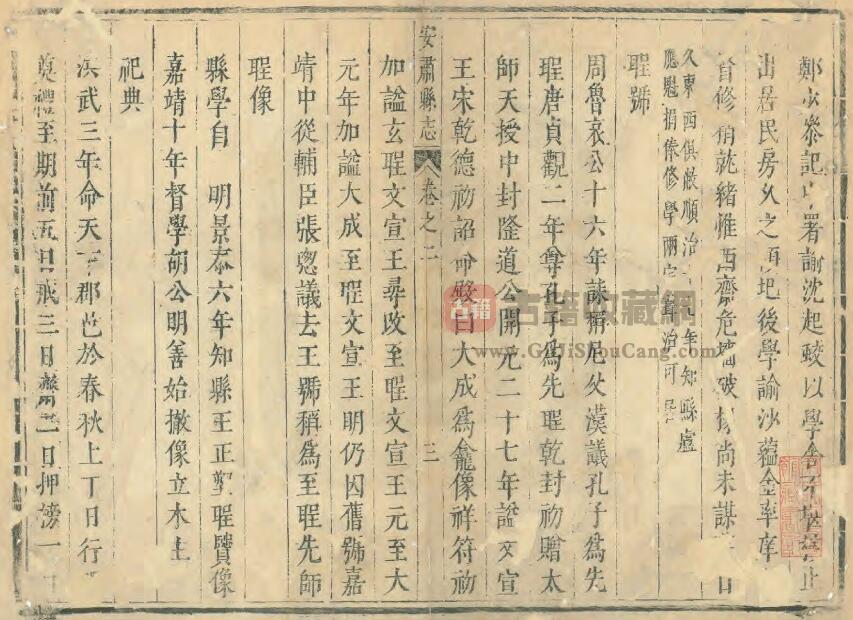 鄭汝泰記署諭沈起蛟以學舍不止
出居民房久之頹圯後學諭沙蘊金率庠
首修稍就緒惟西齋危墻破尚未謀日
久東西俱敝順治年知縣盧
應魁捐俸修學兩治可居
聖號
周魯哀公十六年誄稱尼父漢議孔子為先
聖唐貞觀二年尊孔子為先聖乾封初贈太
師天授中封隆道公開元二十七年謚文宣
安肅縣志 卷之二 三
王宋乾德初詔命殿曰大成為龕像祥符初
加謚玄聖文宣王尋改至聖文宣王元至大
元年加謚大成至聖文宣王明仍因舊號嘉
靖中從輔臣張璁議去王號稱為至聖先師
聖像
縣學自 明景泰六年知縣王正塑聖賢像
嘉靖十年督學胡公明善始撤像立木主
祀典
洪武三年命天下郡邑於春秋上丁日行
奠禮至期前五日戒三日齋一日押榜一
古籍 古籍收藏網
www.GuJiShouCang.com